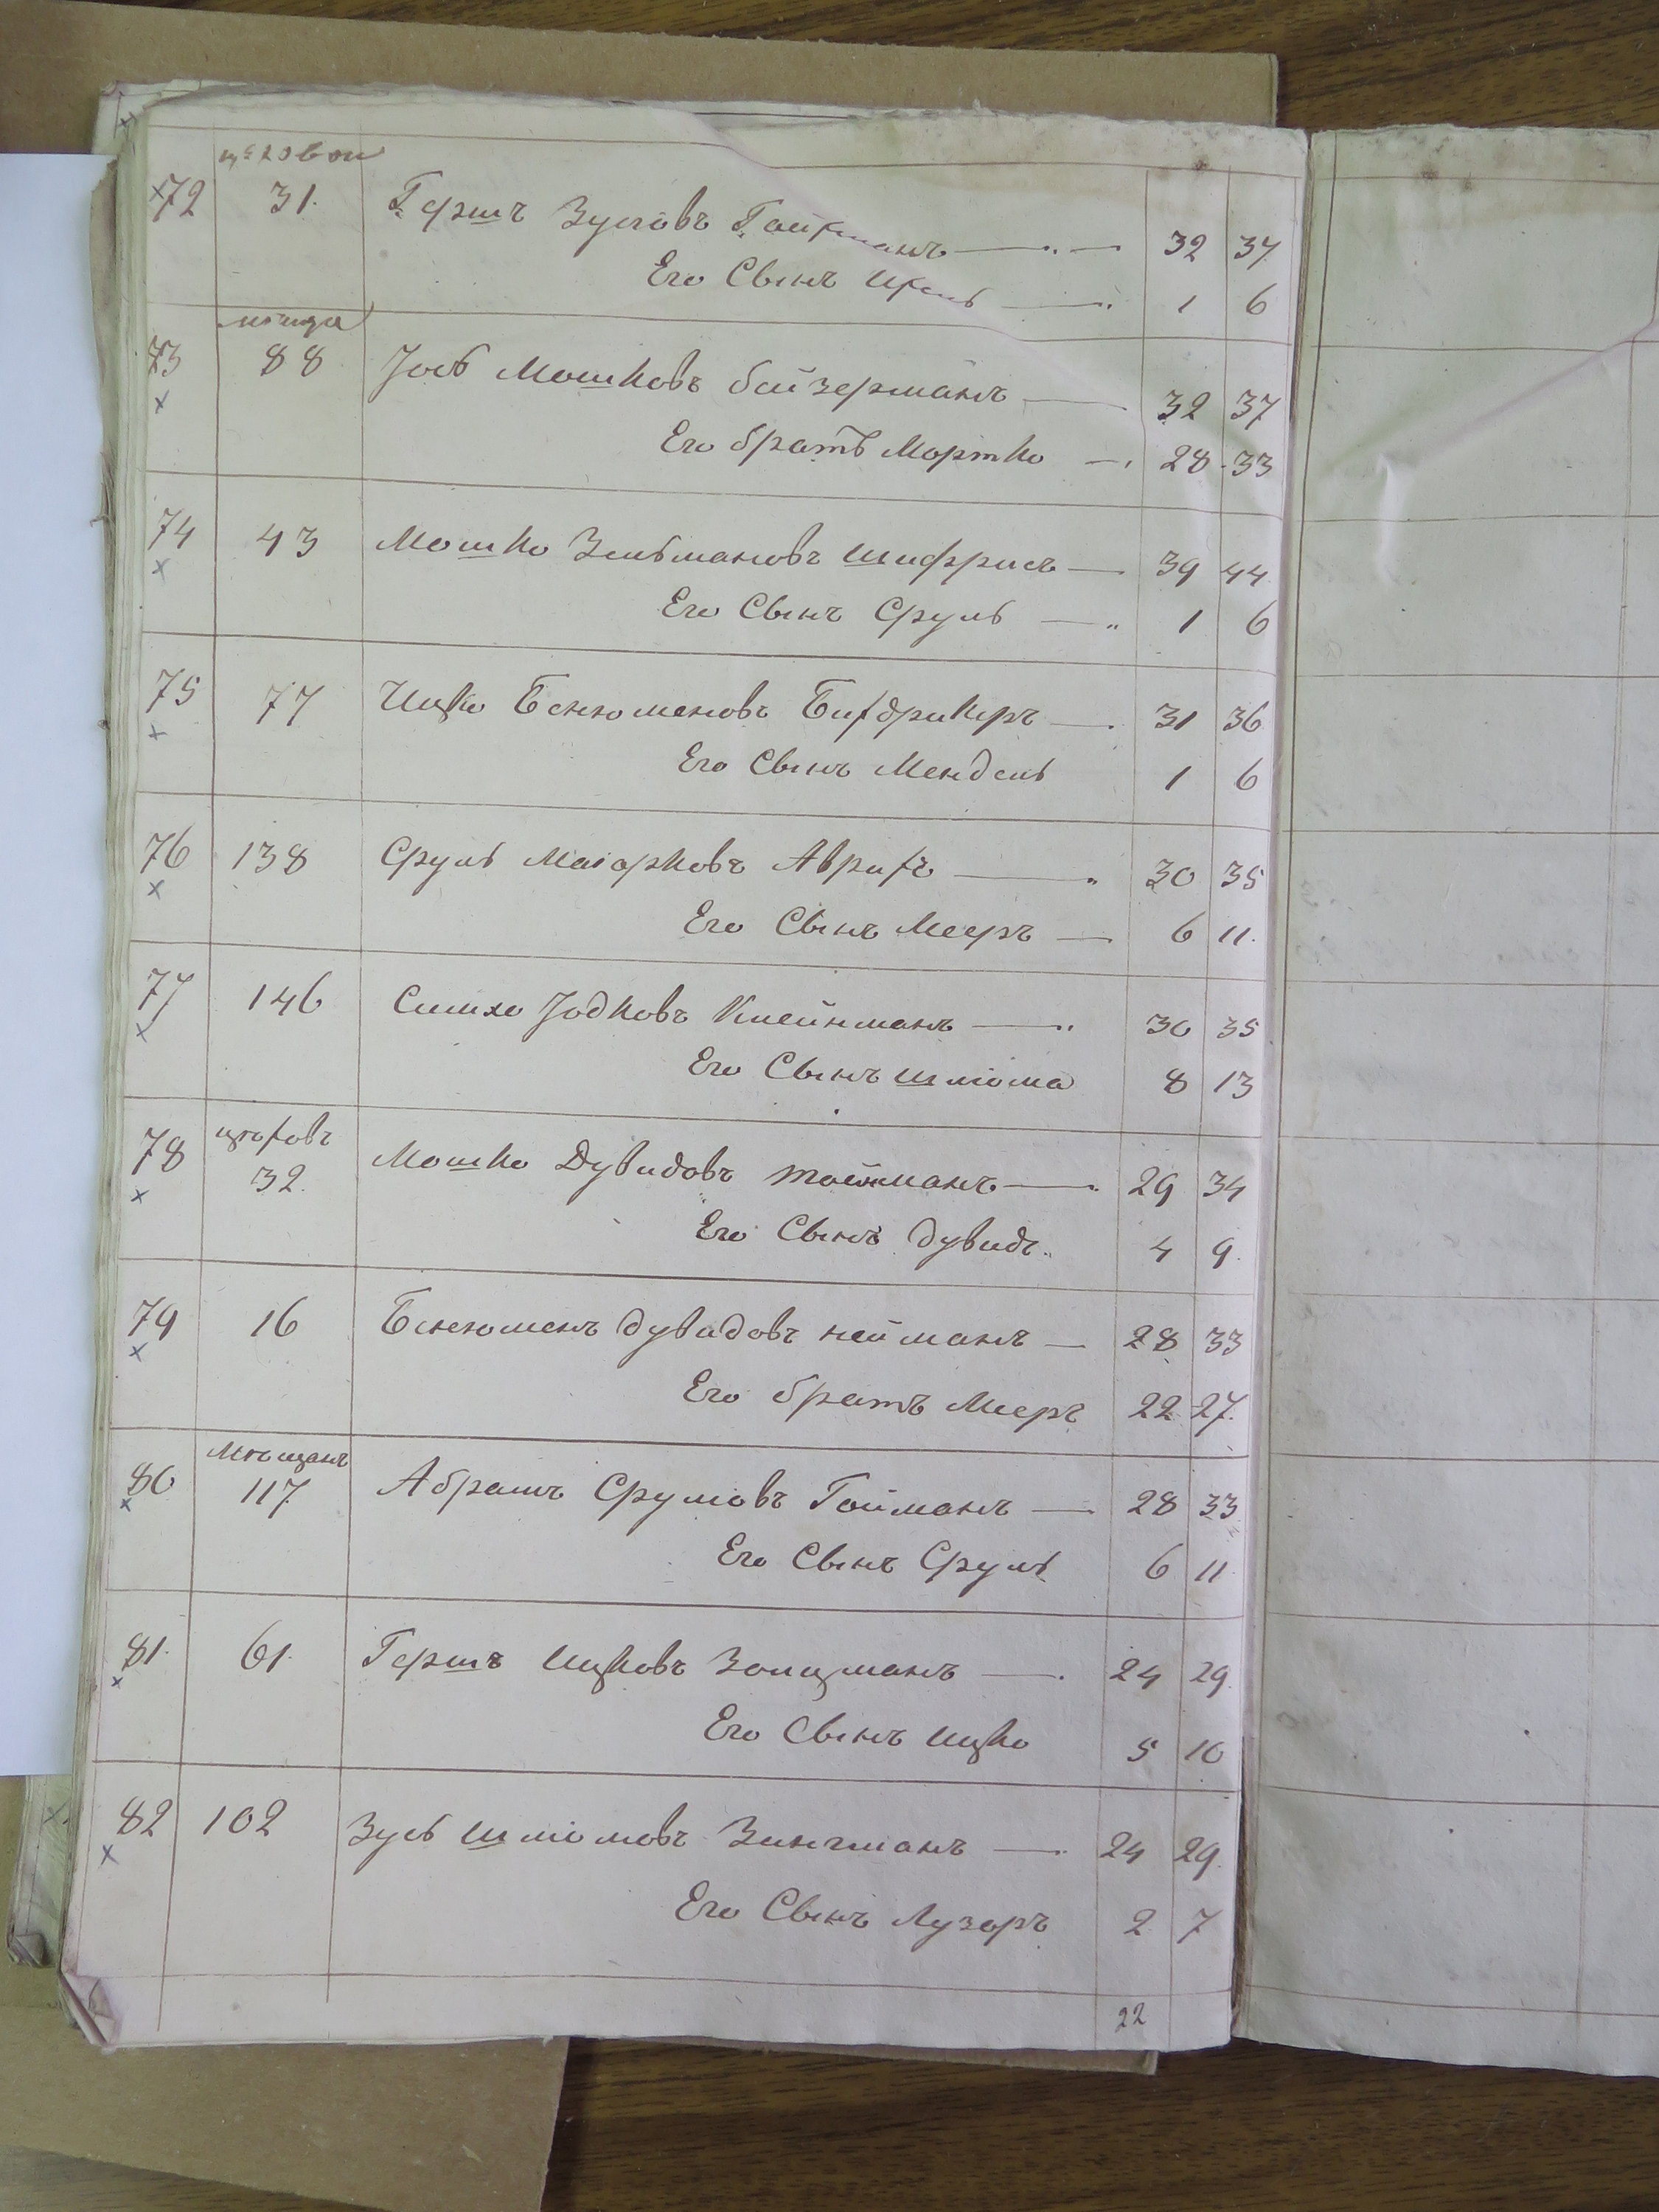 72 31. Гершъ Зуслевъ Гойхманъ — 32 37
Его Сынъ — 1 6
73 88 Іось Мошковъ байзерманъ — 32 37
Его братъ Мортко — 28 33
74 43 Мошко Зельмановъ шифрисъ — 39 44
Его Сынъ Сруль — 1 6
75 77 Ицко Бенюменовъ — 31 36
Его Сынъ Мендель 1 6
76 138 Сруль Маіорковъ — 30 35
Его Сынъ Мееръ — 6 11.
77 146 Симхе Іодковъ Клейнманъ — 30 35
Его Сынъ шліома 8 13
78 32. Мошко Дувидовъ — 29 34
Его Сынъ дувидъ 4 9.
79 16 Бенюменъ дувидовъ нейманъ — 28 33
Его братъ Мееръ 22 27.
мѣщанъ
80 117 Абрамъ Срулювъ Гойманъ — 28 33
Его Сынъ Сруль 6 11
81. 61. Гершъ ицковъ Золцманъ — 24 29.
Его Сынъ ицко 5 10
82 102 Зусь шліомовъ Зингманъ — 24 29.
Его Сынъ Лузоръ 2 7
22